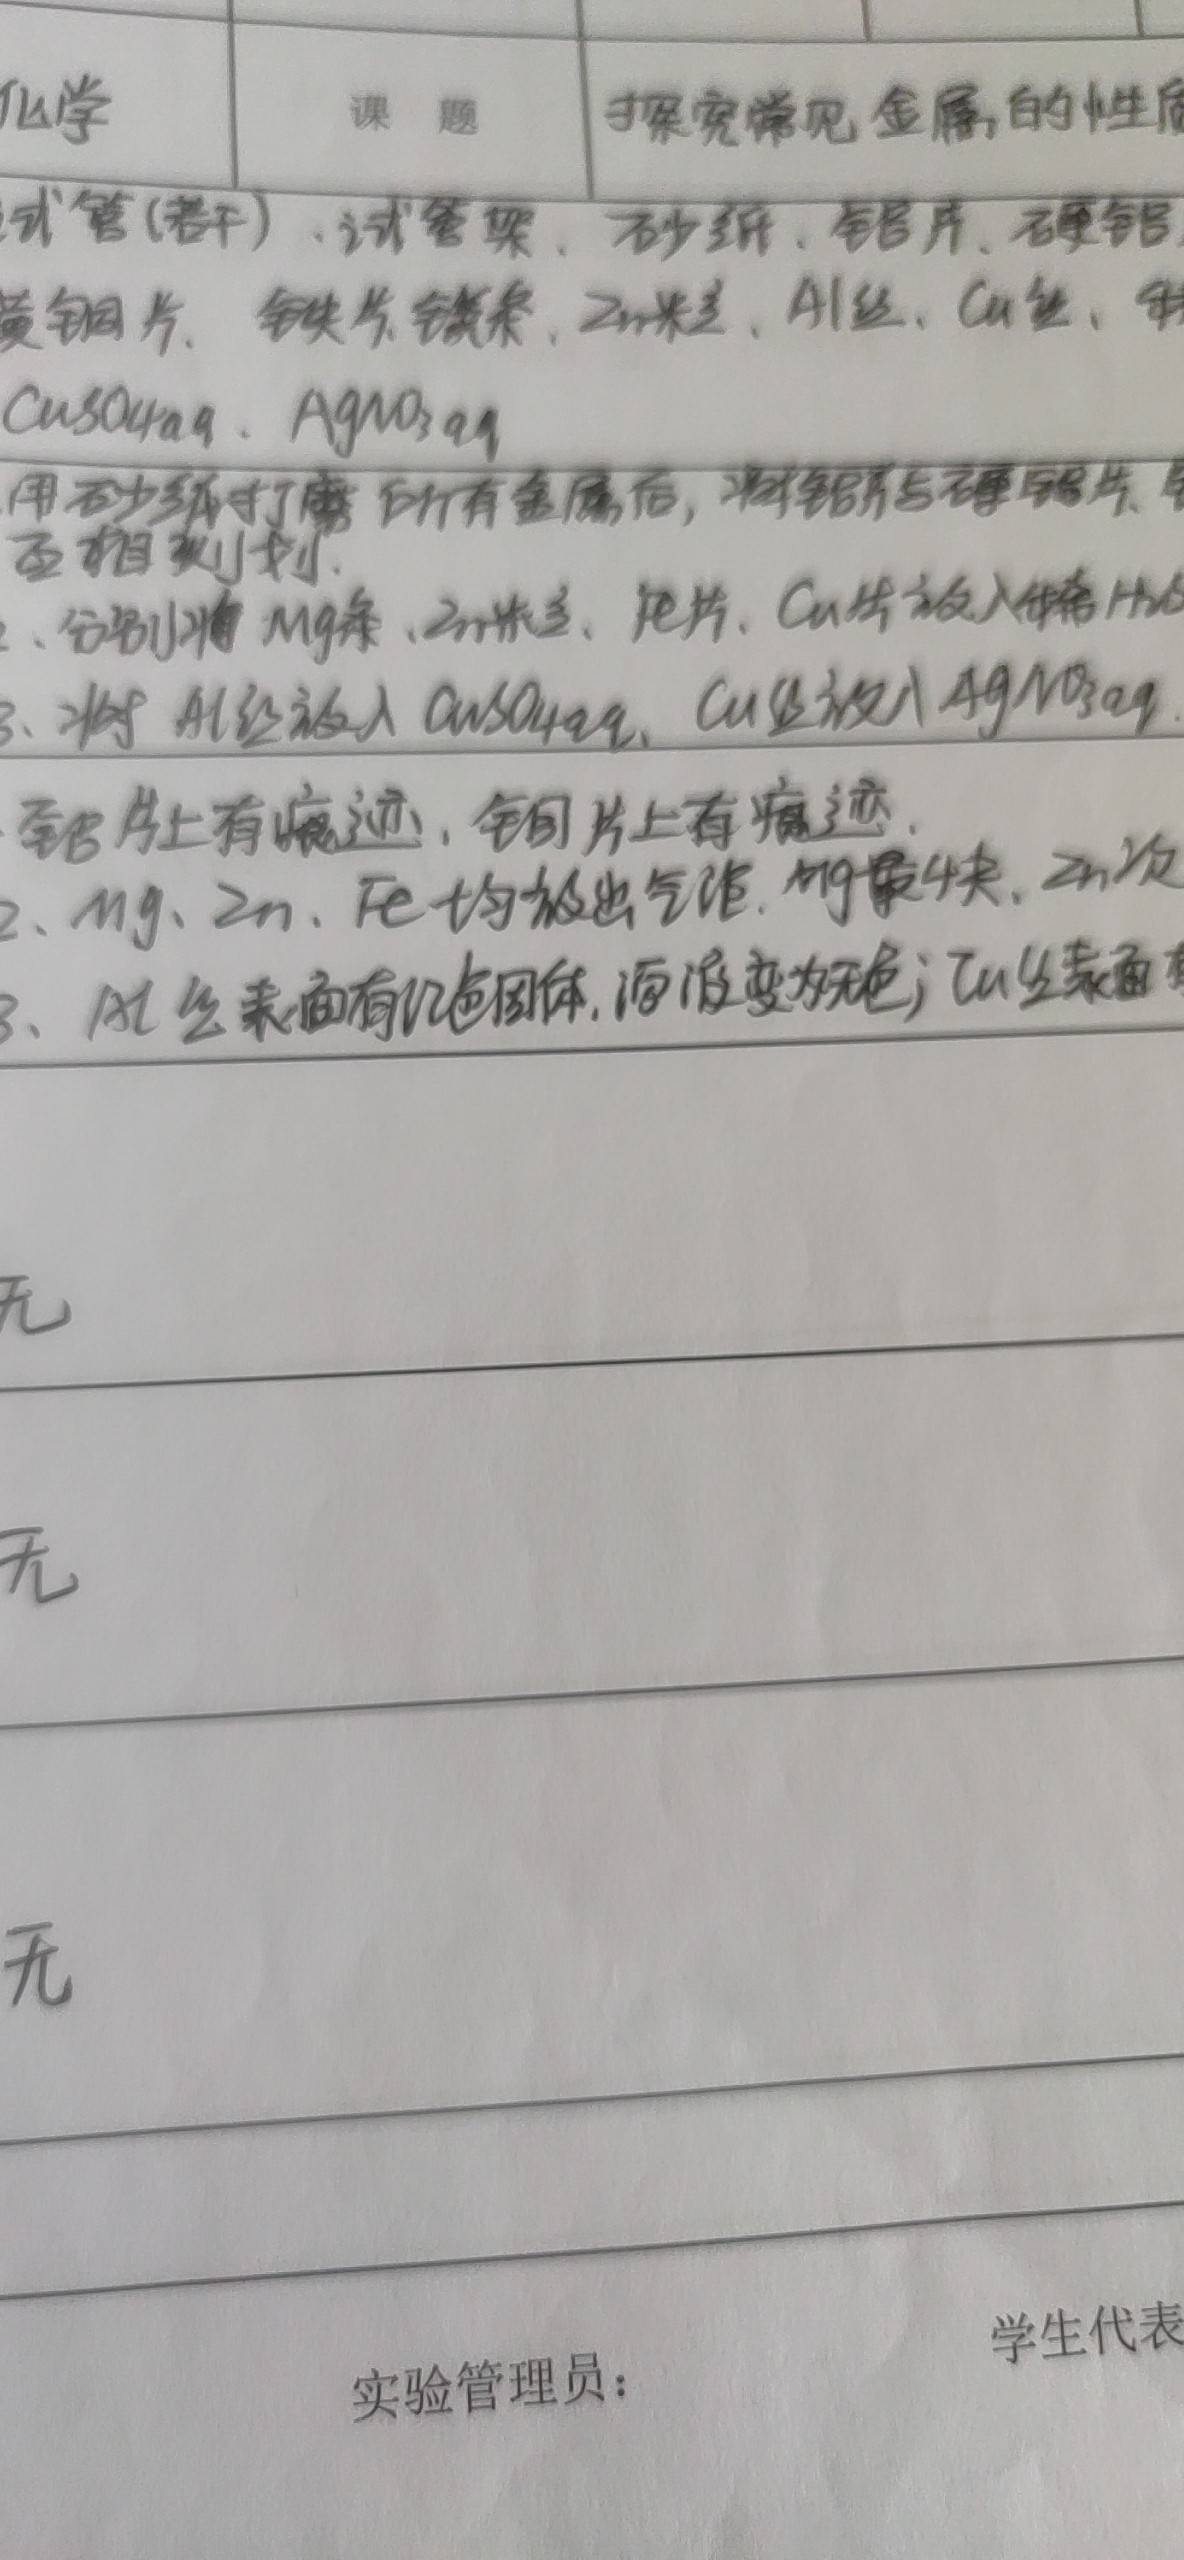 化学 课 题 探究常见金属的性质
试管(若干)、试管架、砂纸、铝片、硬铝
黄铜片、铁片、镁条、Zn粒、Al丝、Cu丝、
CuSO4aq、AgNO3aq
用砂纸打磨所有金属后,将铝片与硬铝片、
互相刻划.
2、分别将Mg条、Zn粒、Fe片、Cu片放入稀H2S
3、将Al丝放入CuSO4aq、Cu丝放入AgNO3aq.
铝片上有痕迹,铜片上有痕迹.
2、Mg、Zn、Fe均放出气泡.Mg最快,Zn次
3、Al丝表面有红色固体,溶液变为无色;Cu丝表面有
无
无
无
学生代表
实验管理员: